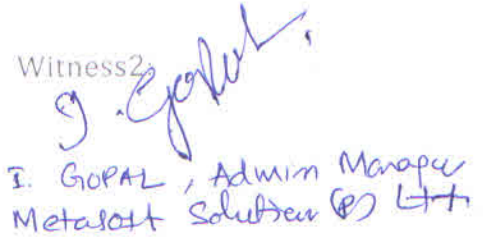 Witness2:
I. Gopal.
I. GOPAL, Admin Manager
Metasoft Solution (P) Ltd